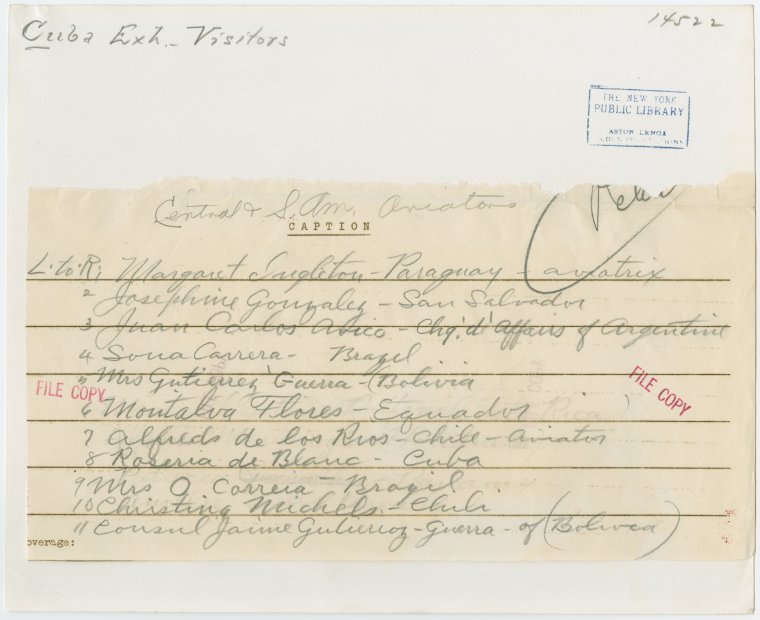 Cuba Exh. - Visitors
14522
THE NEW YORK
PUBLIC LIBRARY
ASTOR LENOX
Central & S. Am. Aviators
CAPTION
L. to R. Margaret Singleton - Paraguay - aviatrix
2 Josephine Gonzalez - San Salvador
3 Juan Carlos - Chg. d' Affairs of Argentine
4 Sona Carrera - Brazil
5 Mrs Gutierrez Guerra - (Bolivia
FILE COPY
FILE COPY
6 Montalva Flores - Equador
7 Alfredo de los Rios - Chile - Aviator
8 Roseria de Blanc - Cuba
9 Mrs O Correia - Brazil
10 Christina Michels - Chili
11 Consul Jaime Gutierrez - Guerra - of (Bolivia)
overage: